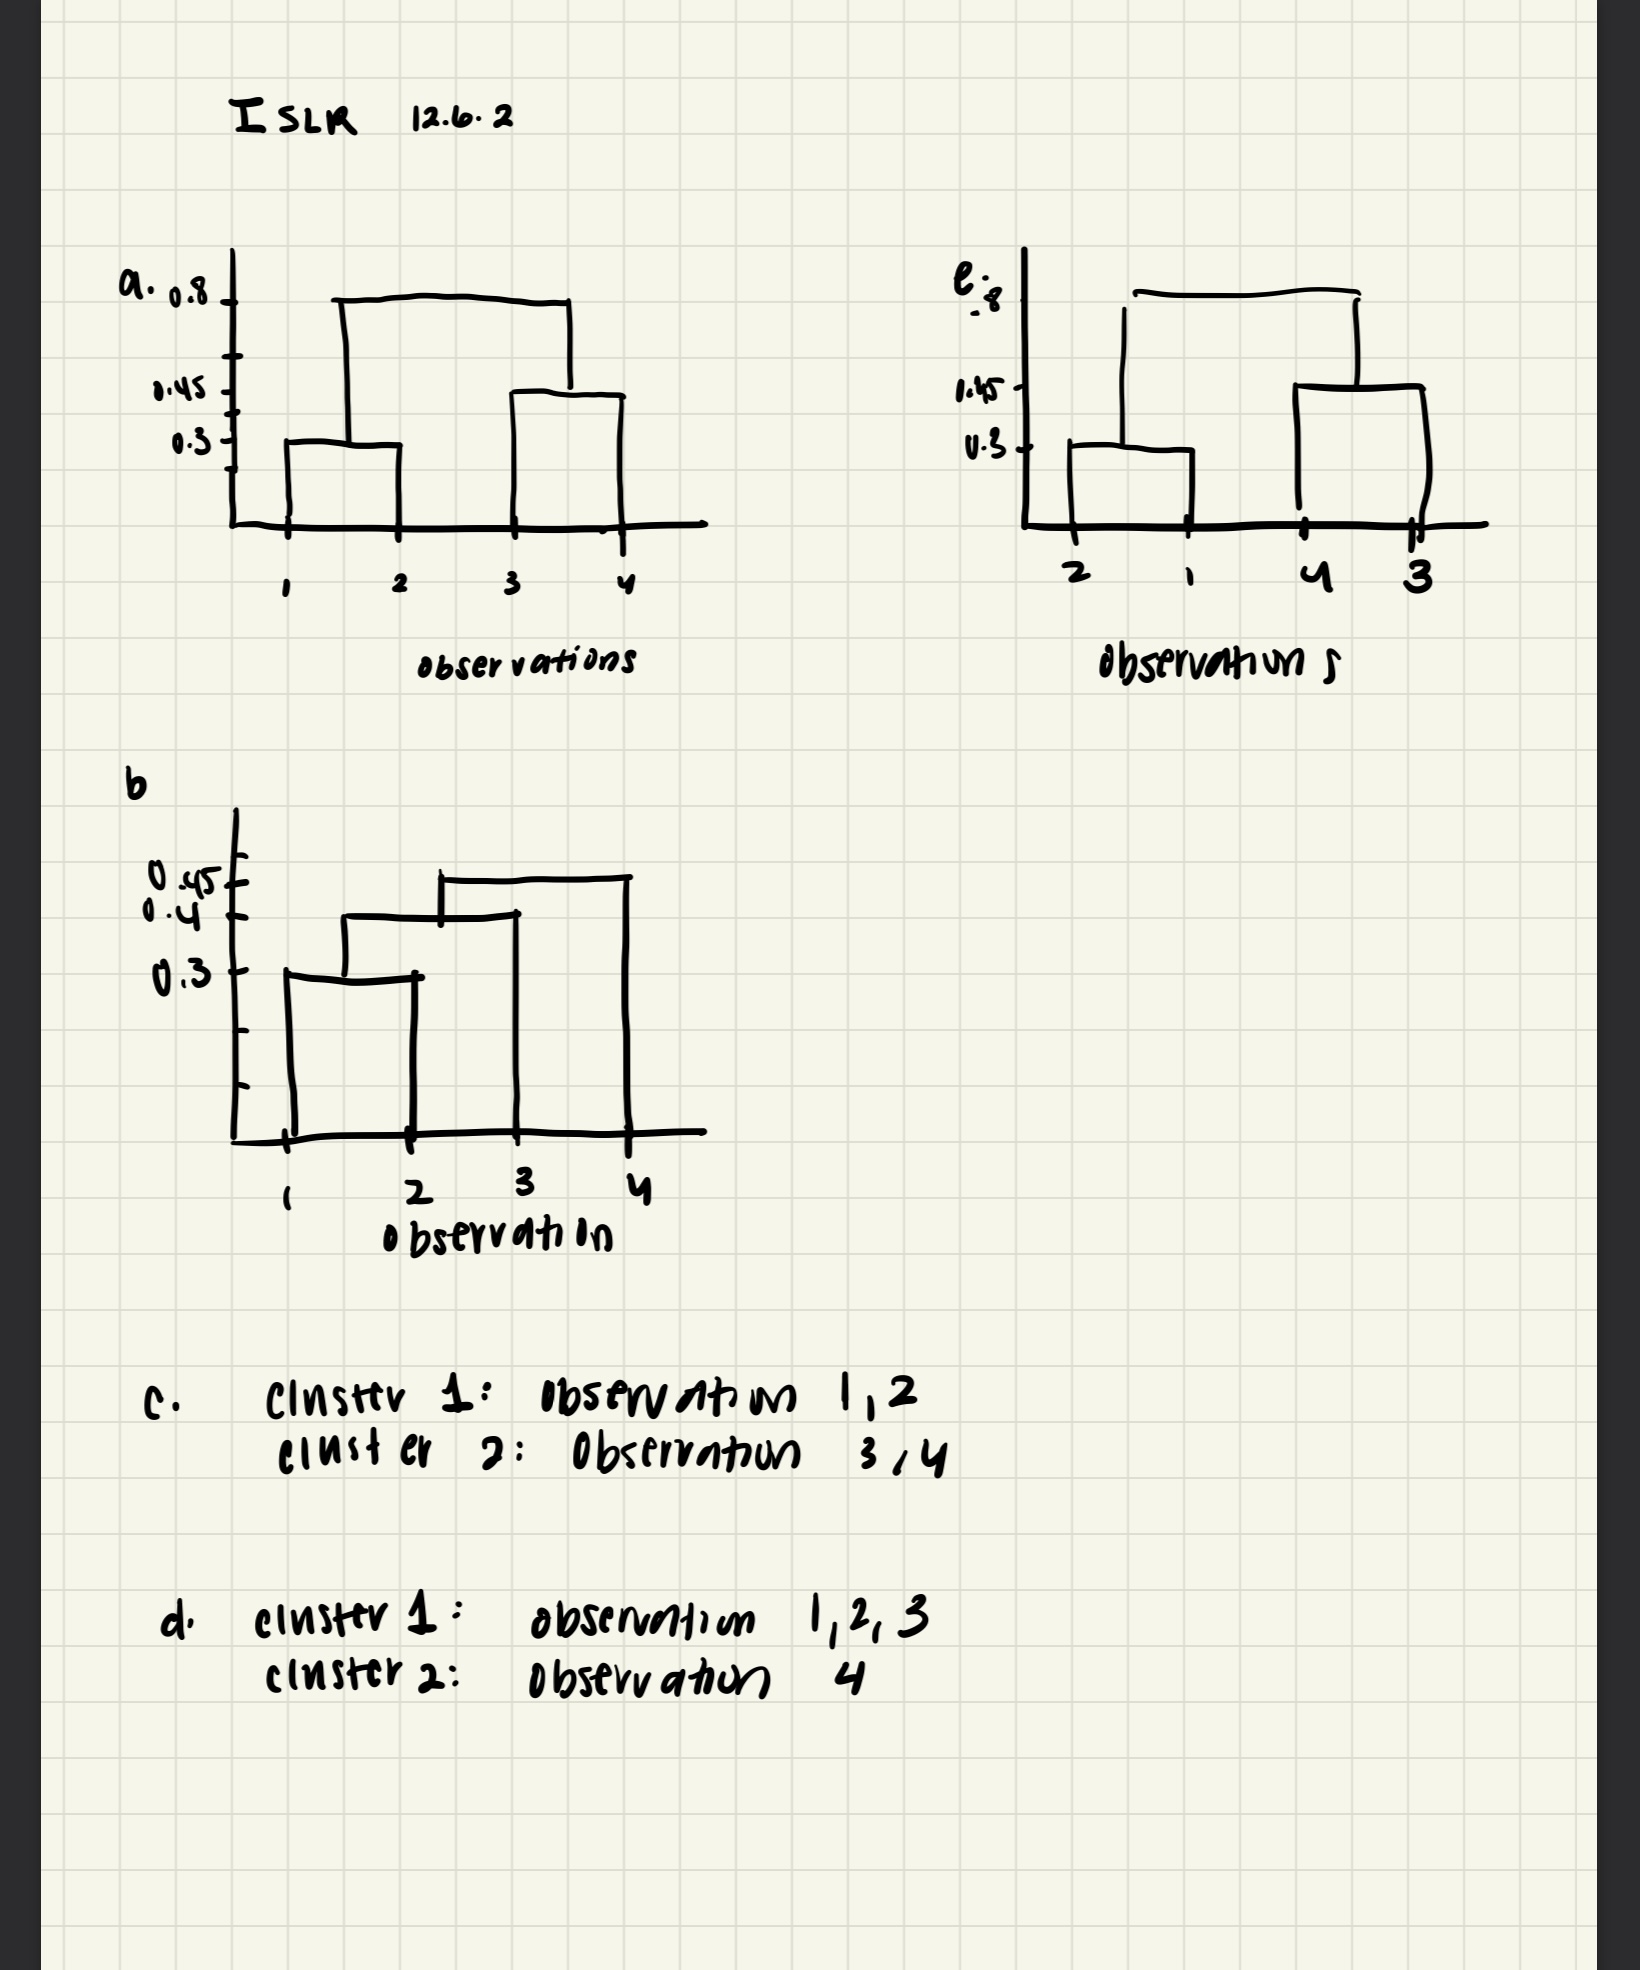 ISLR 12.6.2
a.
0.8
0.45
0.3
1 2 3 4
observations
e.
.8
0.45
0.3
2 1 4 3
observations
b
0.45
0.4
0.3
1 2 3 4
observation
c. cluster 1: observation 1,2
cluster 2: observation 3,4
d. cluster 1: observation 1,2,3
cluster 2: observation 4